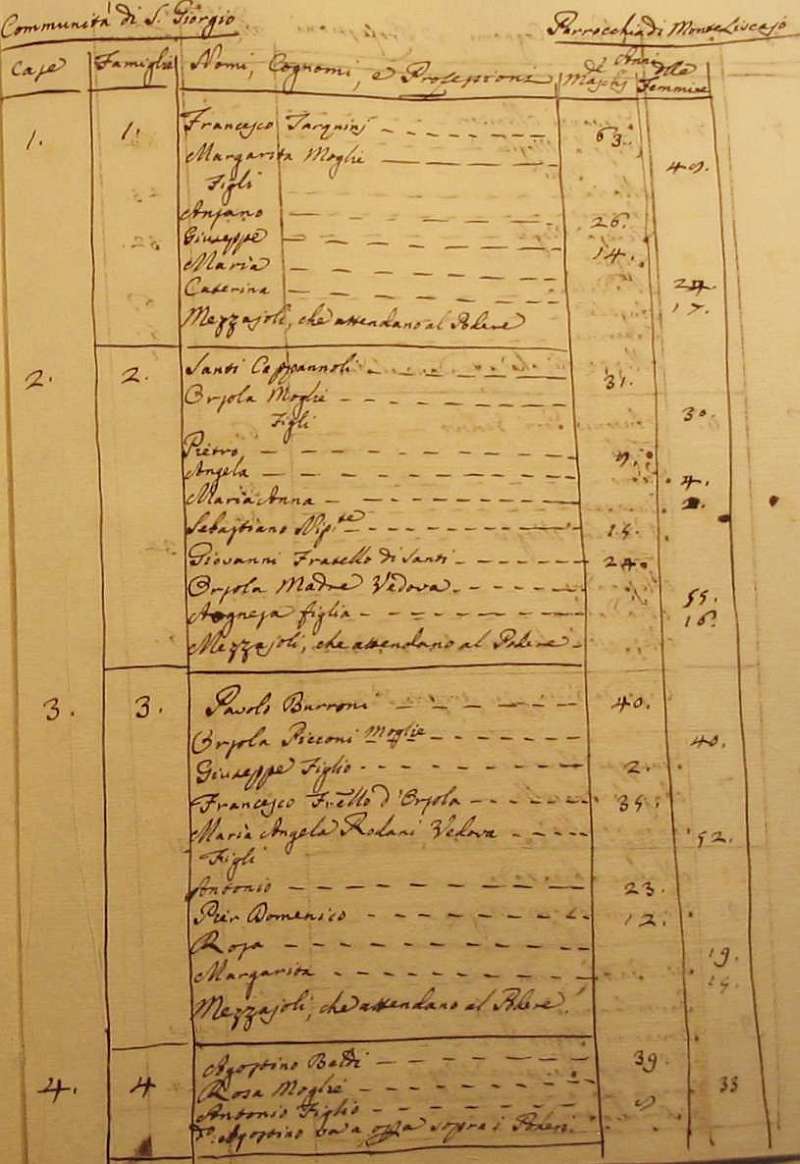 Communità di S. Giorgio Parrocchia di Monte Liscajo
Case Famiglie Nomi, Cognomi, e Professioni Anni
di Maschj delle Femmine
1. 1. Francesco Tarquinj 63.
Margarita Moglie 49.
Figli
Ansano 26.
Giuseppe 14.
Maria 24
Caterina 17.
Mezzajoli, che attendano al Podere
2. 2. Santi Cappannoli 31.
Orsola Moglie 30.
Figli
Pietro 9.
Angela 4.
Maria Anna 2.
Sebastiano Nip.te 15.
Giovanni Fratello di Santi 24.
Orsola Madre Vedova 55.
Agnesa figlia 16.
Mezzajoli, che attendano al Podere
3. 3. Pavolo Burroni 40.
Orsola Picconi Moglie 40.
Giuseppe Figlio 2.
Francesco Frello d'Orsola 35.
Maria Angela Rodani Vedova 52.
Figli
Antonio 23.
Pier Domenico 12.
Rosa 19.
Margarita 15.
Mezzajoli, che attendano al Podere.
4. 4 Agostino Betti 39.
Rosa Moglie 33
Antonio Figlio 9
do. Agostino va a opra sopra i Poderi.